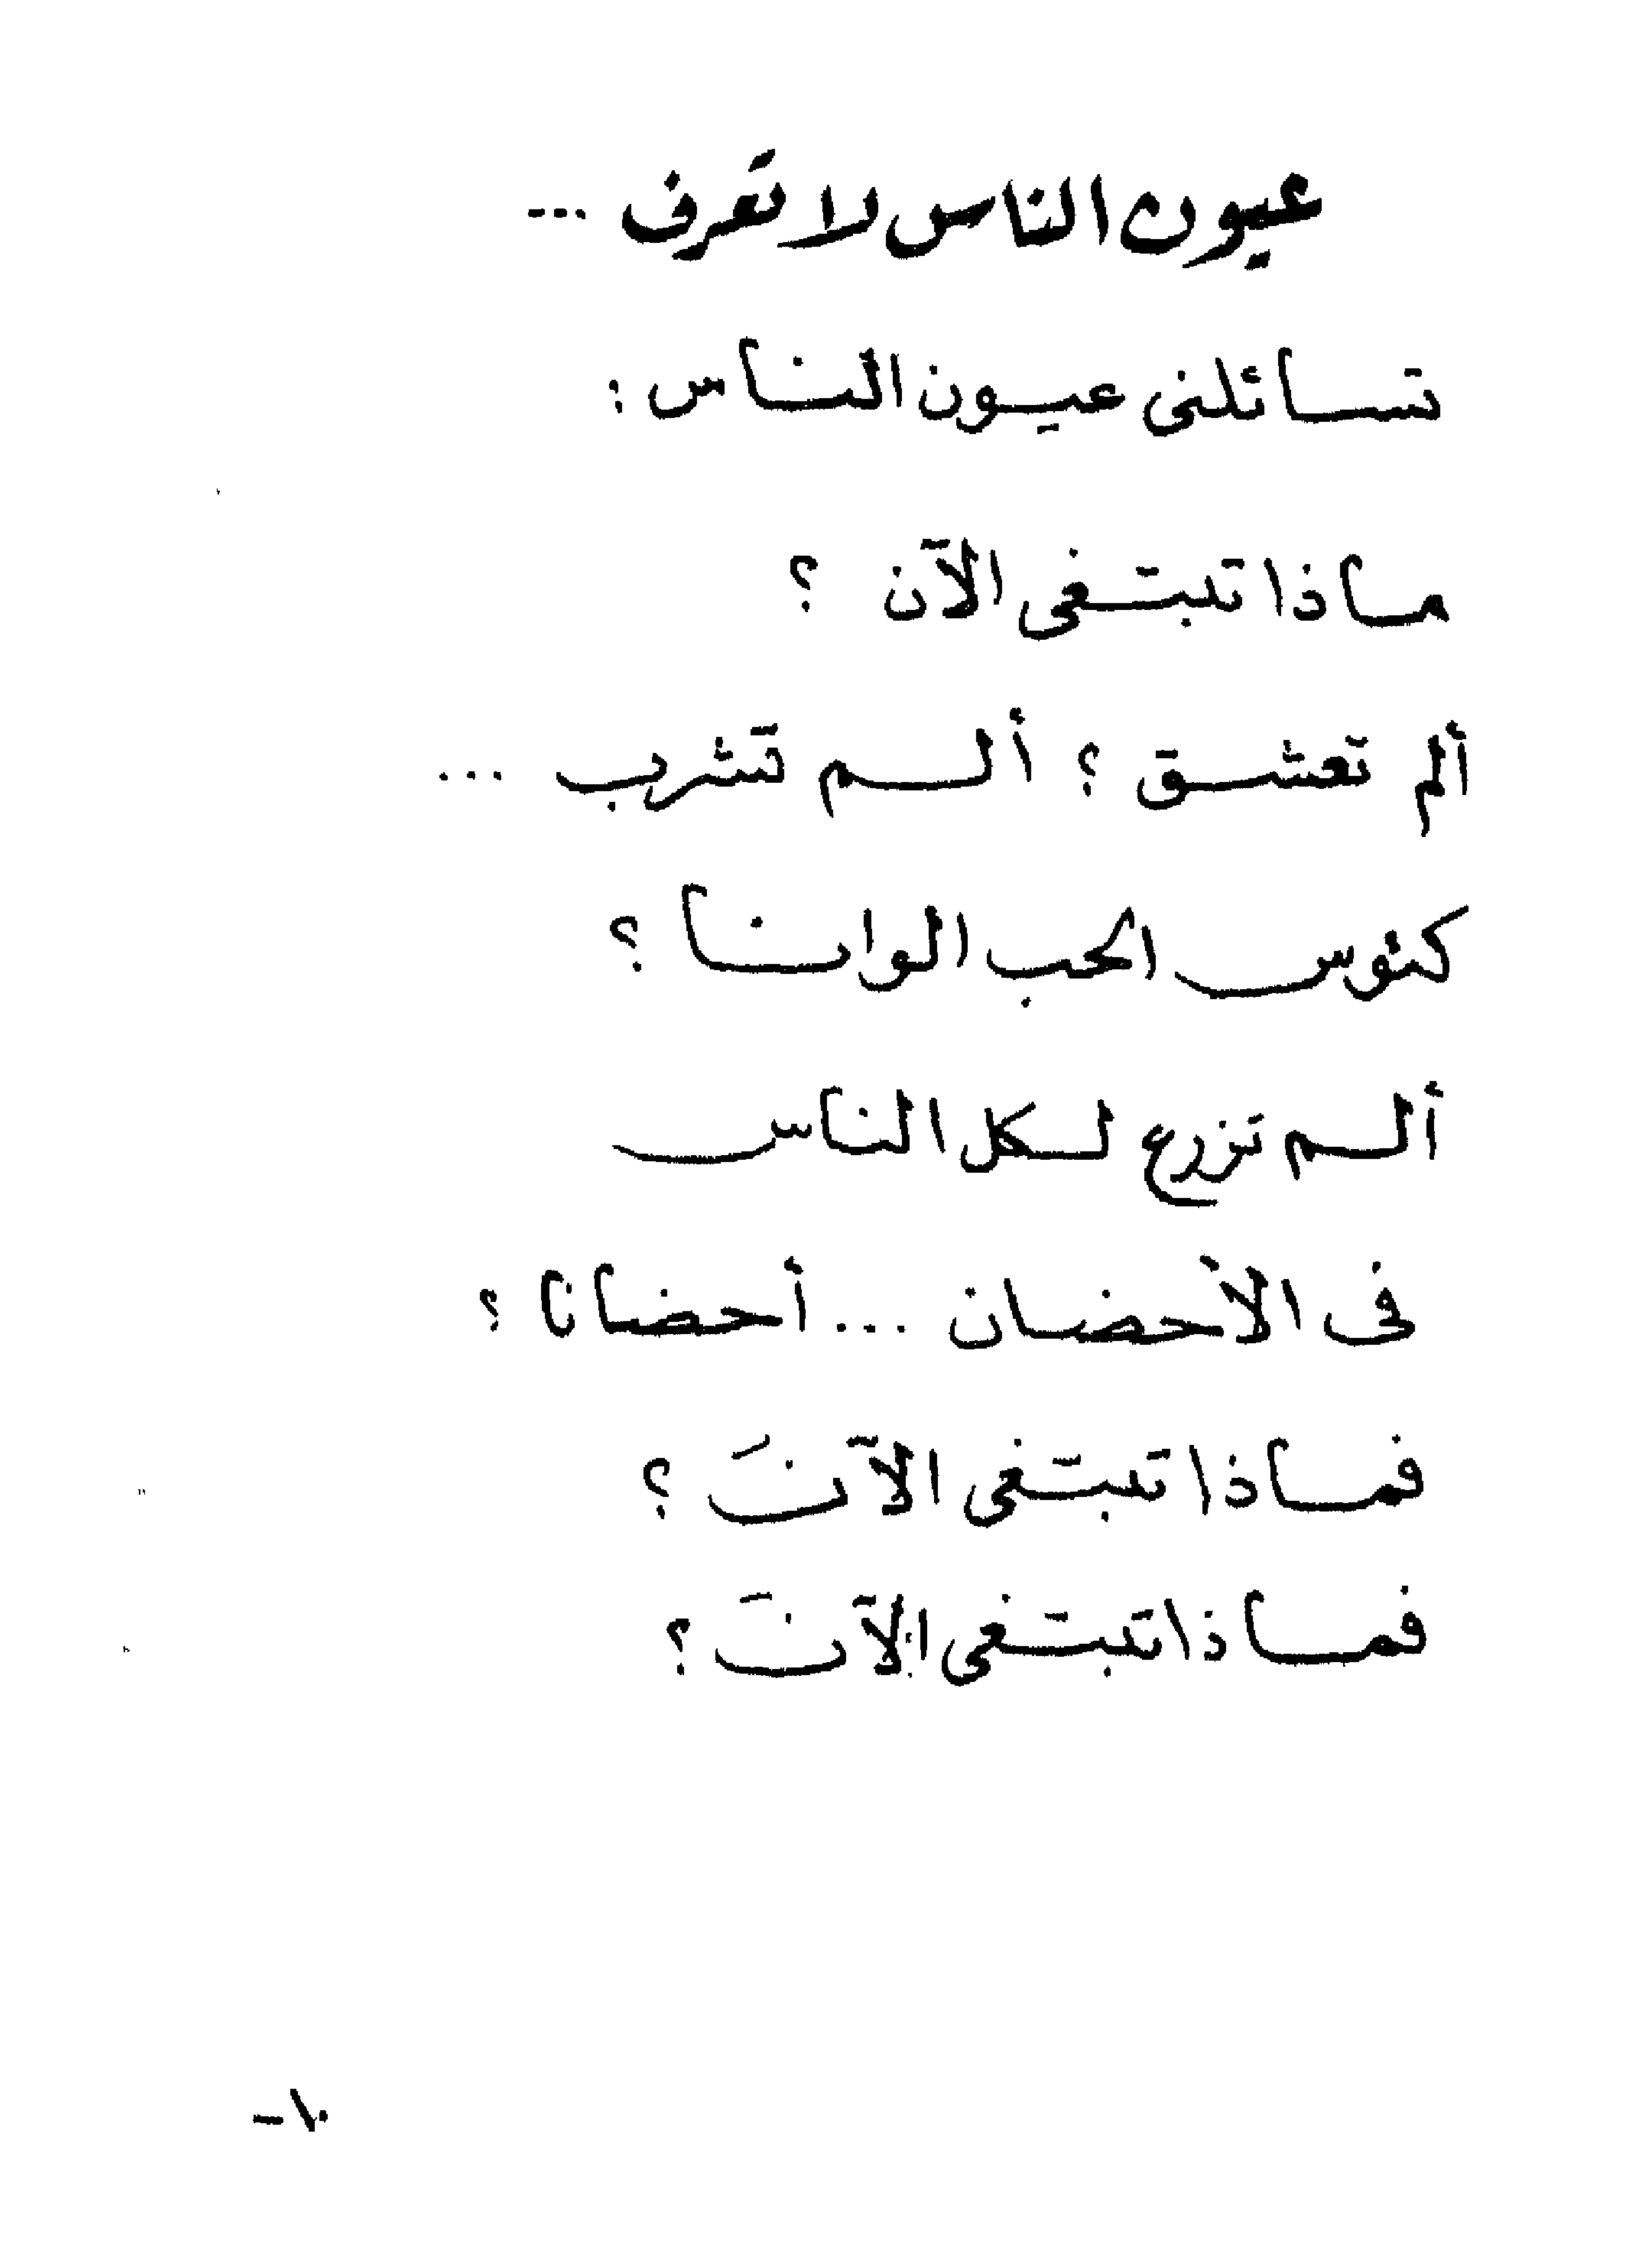 عيون الناس لا تعرف ...
تسائلنى عيون الناس :
ماذا تبتغى الآن ؟
ألم تعشق ؟ ألم تشرب ...
كئوس الحب الوانا ؟
ألم تزرع لكل الناس
فى الأحضان ... أحضانا ؟
فماذا تبتغى الآنَ ؟
فماذا تبتغى الآنَ ؟
١٠-